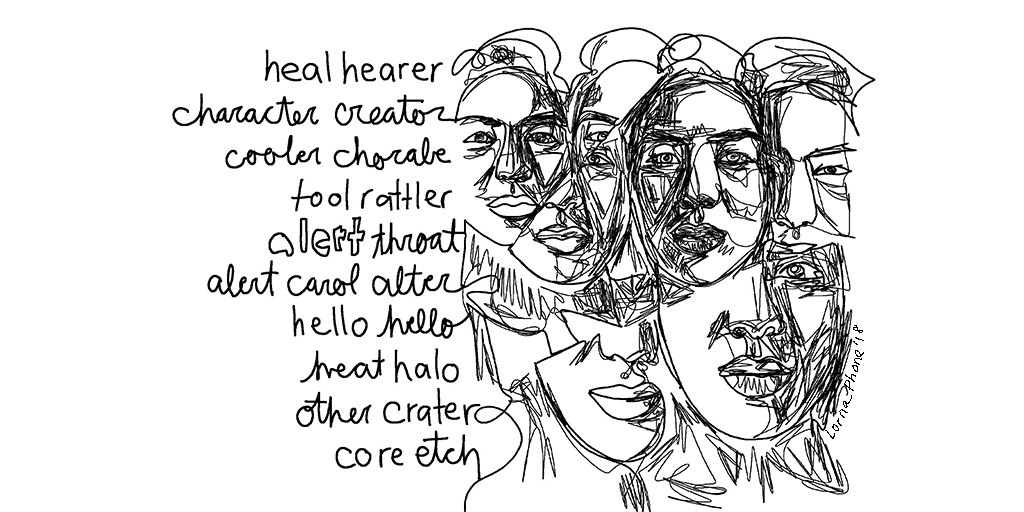 heal hearer
character creator
cooler chorale
tool rattler
alert throat
alert carol alter
hello hello
heat halo
other crater
core etch
Lorna_Phone '18